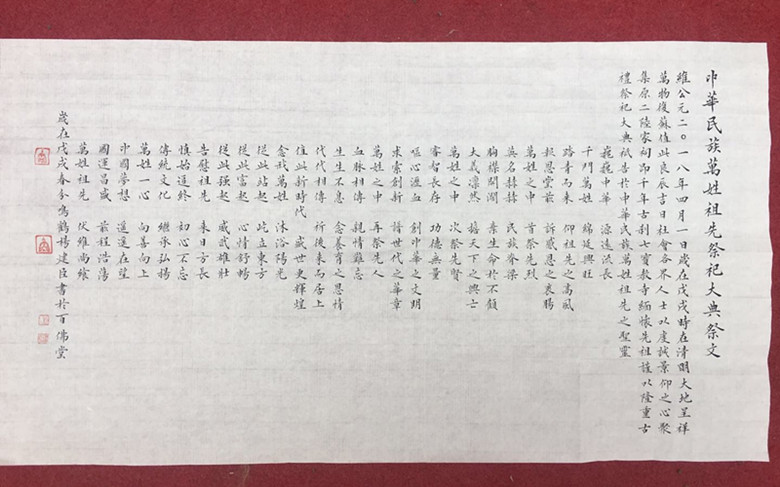 中華民族萬姓祖先祭祀大典祭文
維公元二〇一八年四月一日歲在戊戌時在清明大地呈祥
萬物復蘇值此良辰吉日社會各界人士以虔誠景仰之心聚
集原二陸家祠即千年古刹七寶教寺緬懷先祖謹以隆重古
禮祭祀大典祇告於中華民族萬姓祖先之聖靈
巍巍中華 源遠流長
千門萬姓 綿延興旺
踏青而來 仰祖先之高風
報恩堂前 訴感恩之衷腸
萬姓之中 首祭先烈
英名赫赫 民族脊梁
胸襟開濶 素生命於不顧
大義凛然 擔天下之興亡
萬姓之中 次祭先賢
睿智長存 功德無量
嘔心瀝血 創中華之文明
求索創新 譜世代之華章
萬姓之中 再祭先人
血脉相傳 親情難忘
生生不息 念養育之恩情
代代相傳 祈後來而居上
值此新時代 盛世更輝煌
念我萬姓 沐浴陽光
從此站起 屹立東方
從此富起 心情舒暢
從此强起 威武雄壯
告慰祖先 來日方長
慎始追終 初心不忘
傳統文化 繼承弘揚
萬姓一心 向善向上
中國夢想 遥遥在望
國運昌盛 前程浩蕩
萬姓祖先 伏維尚饗
歲在戊戌春分鳴鶴楊建臣書於百佛堂